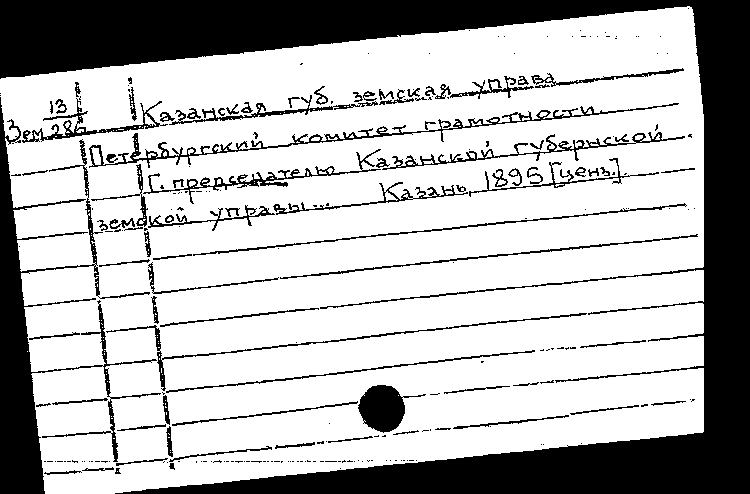 13
Зем 286
Казанская губ. земская управа
Петербургский комитет грамотности.
Г. председателю Казанской губернской
земской управы... Казань, 1895 [цень.].